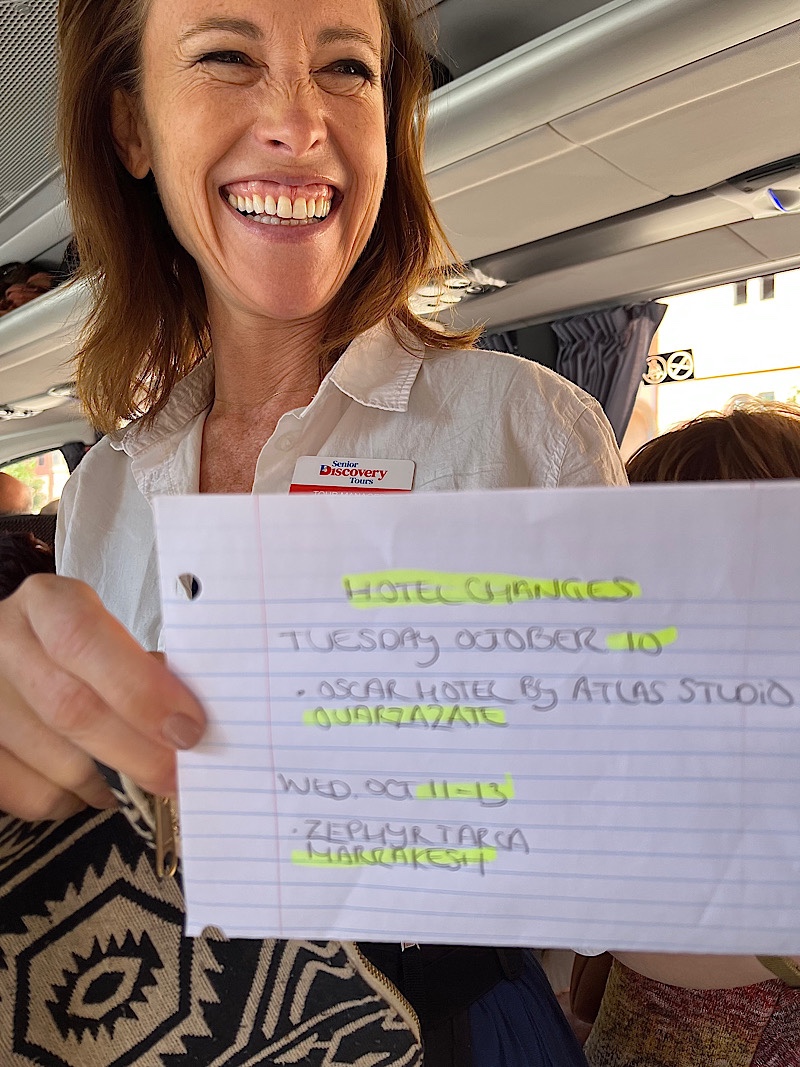 Senior
Discovery
Tours
HOTEL CHANGES
TUESDAY OCTOBER 10
• OSCAR HOTEL By ATLAS STUDiO
OUARZAZATE
WED. OCT 11-13
• ZEPHYR TARGA
MARRAKESH